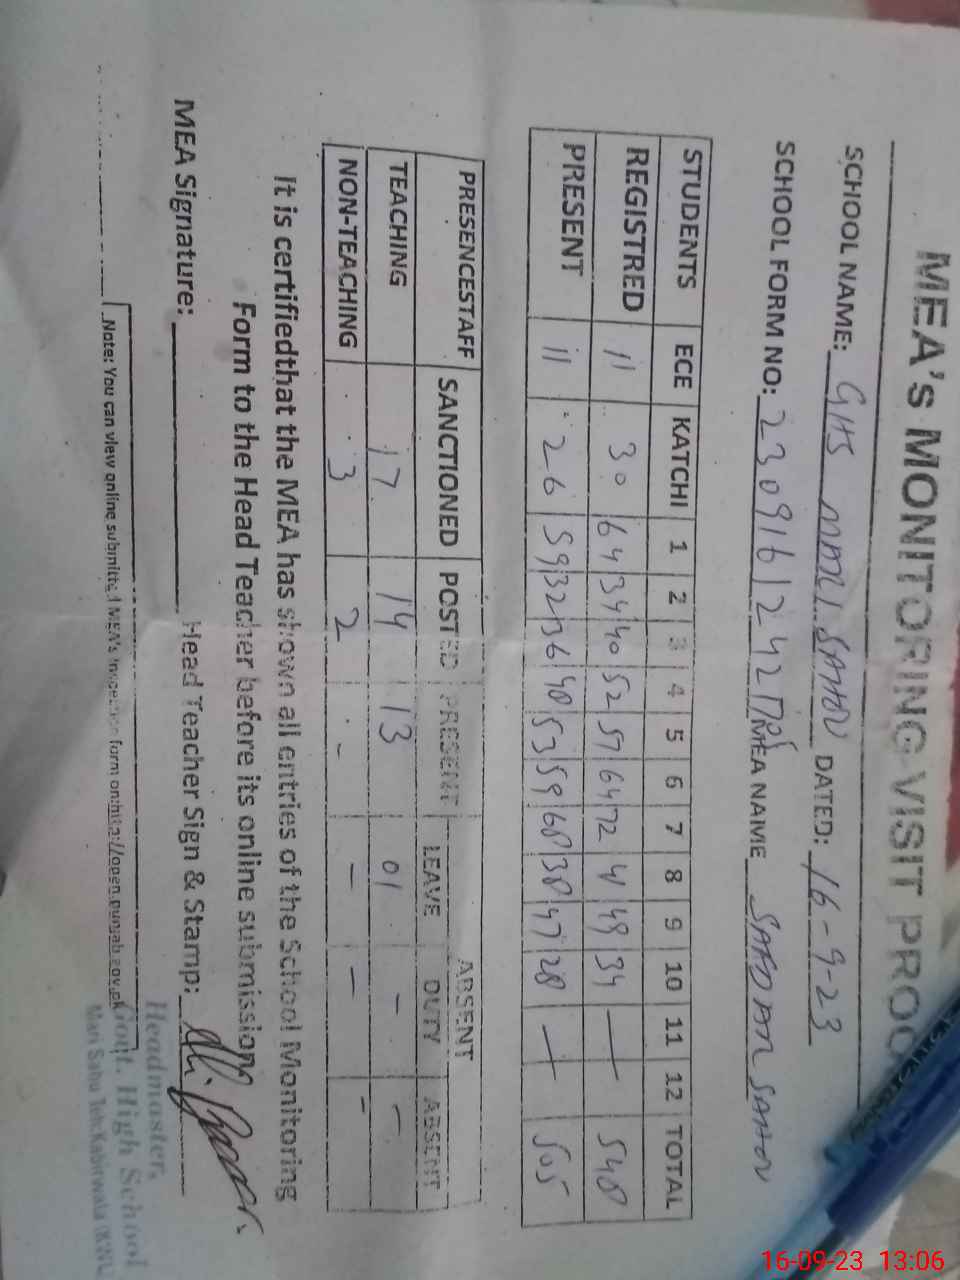 MEA's MONITORING VISIT PROO
SCHOOL NAME: GHS MARI SAHU DATED: 16-9-23
SCHOOL FORM NO: 2309161242 MEA NAME SADDAM SAHU
STUDENTS ECE KATCHI 1 2 3 4 5 6 7 8 9 10 11 12 TOTAL
REGISTRED 11 30 64 34 40 52 57 64 72 41 49 34 — 548
PRESENT 11 26 59 32 36 48 53 59 68 38 47 28 — 505
PRESENCESTAFF SANCTIONED POSTED PRESENT ABSENT
LEAVE DUTY ABSENT
TEACHING 17 14 13 01 - -
NON-TEACHING 3 2 - - - -
It is certifiedthat the MEA has shown all entries of the School Monitoring
Form to the Head Teacher before its online submission
MEA Signature: Head Teacher Sign & Stamp:
Headmaster,
Govt. High School
Mari Sahu Teh: Kabirwala
Note: You can view online submitted MEA's Inspection form on: http://open.punjab.gov.pk
16-09-23 13:06